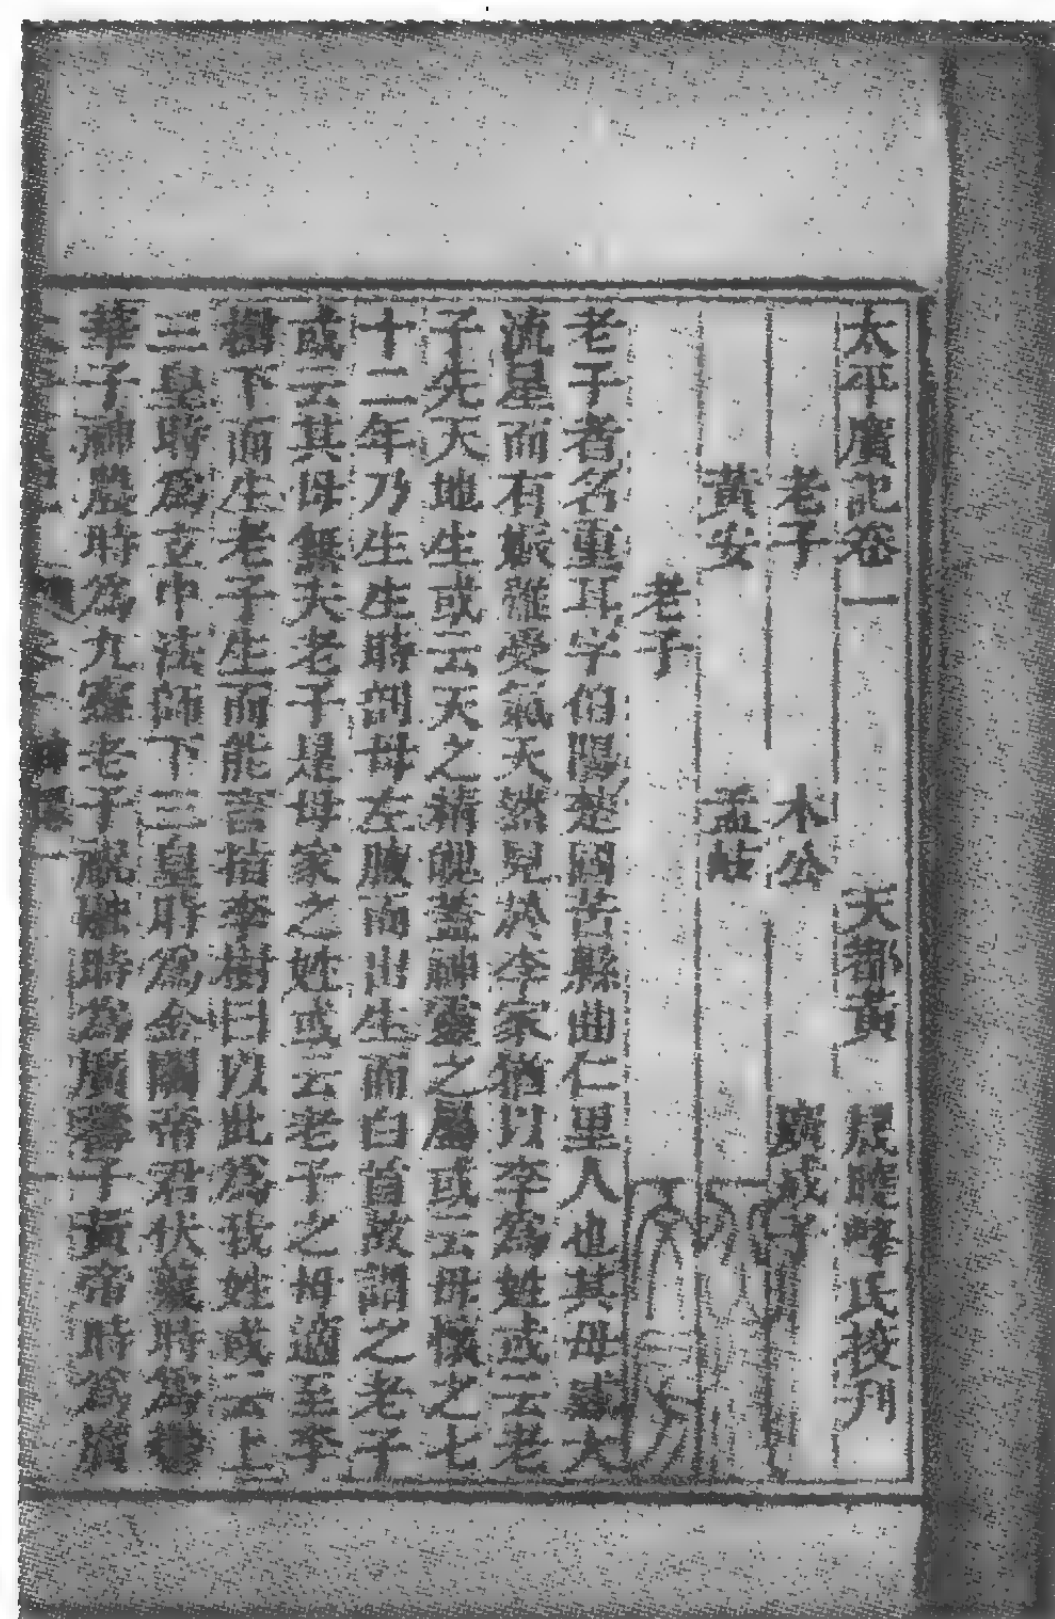 太平廣記卷一　天都黃晟曉峰氏校刋
老子　木公　廣成子
黃安　孟岐
老子
老子者名重耳字伯陽楚國苦縣曲仁里人也其母感大
流星而有娠雖受氣天然見於李家猶以李爲姓或云老
子先天地生或云天之精魄蓋神靈之屬或云母懷之七
十二年乃生生時剖母左腋而出生而白首故謂之老子
或云其母無夫老子是母家之姓或云老子之母適至李
樹下而生老子生而能言指李樹曰以此爲我姓或云上
三皇時爲玄中法師下三皇時爲金闕帝君伏羲時爲鬱
華子神農時爲九靈老子祝融時爲廣壽子黃帝時爲廣